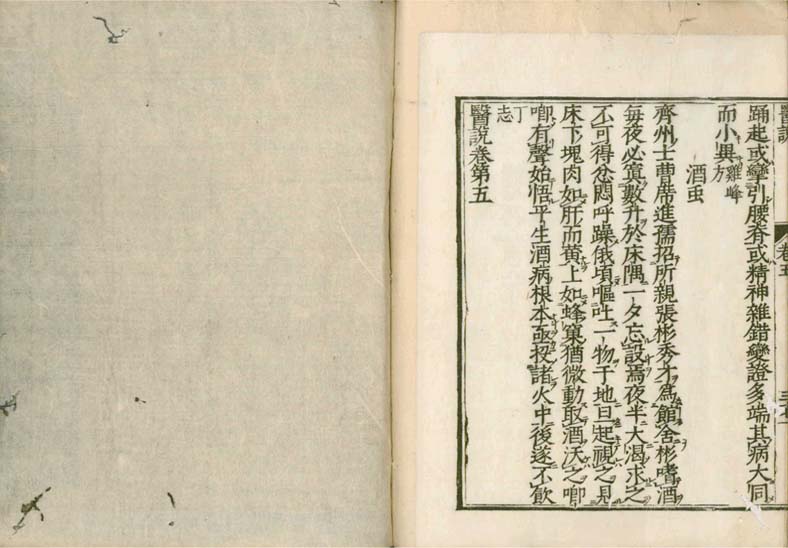 醫說 卷五
踊起或攣引腰脊或精神雜錯變證多端其病大同
而小異雞峰方
酒虫
齊州士曹席進孺招所親張彬秀才爲館舍彬嗜酒
每夜必寘數升於床隅一夕忘設焉夜半大渴求之
不可得忿悶呼躁俄頃嘔吐一物于地旦起視之見
床下塊肉如肝而黄上如蜂窠猶微動取酒沃之唧
唧有聲始悟平生酒病根本亟投諸火中後遂不飲
丁志
醫說卷第五